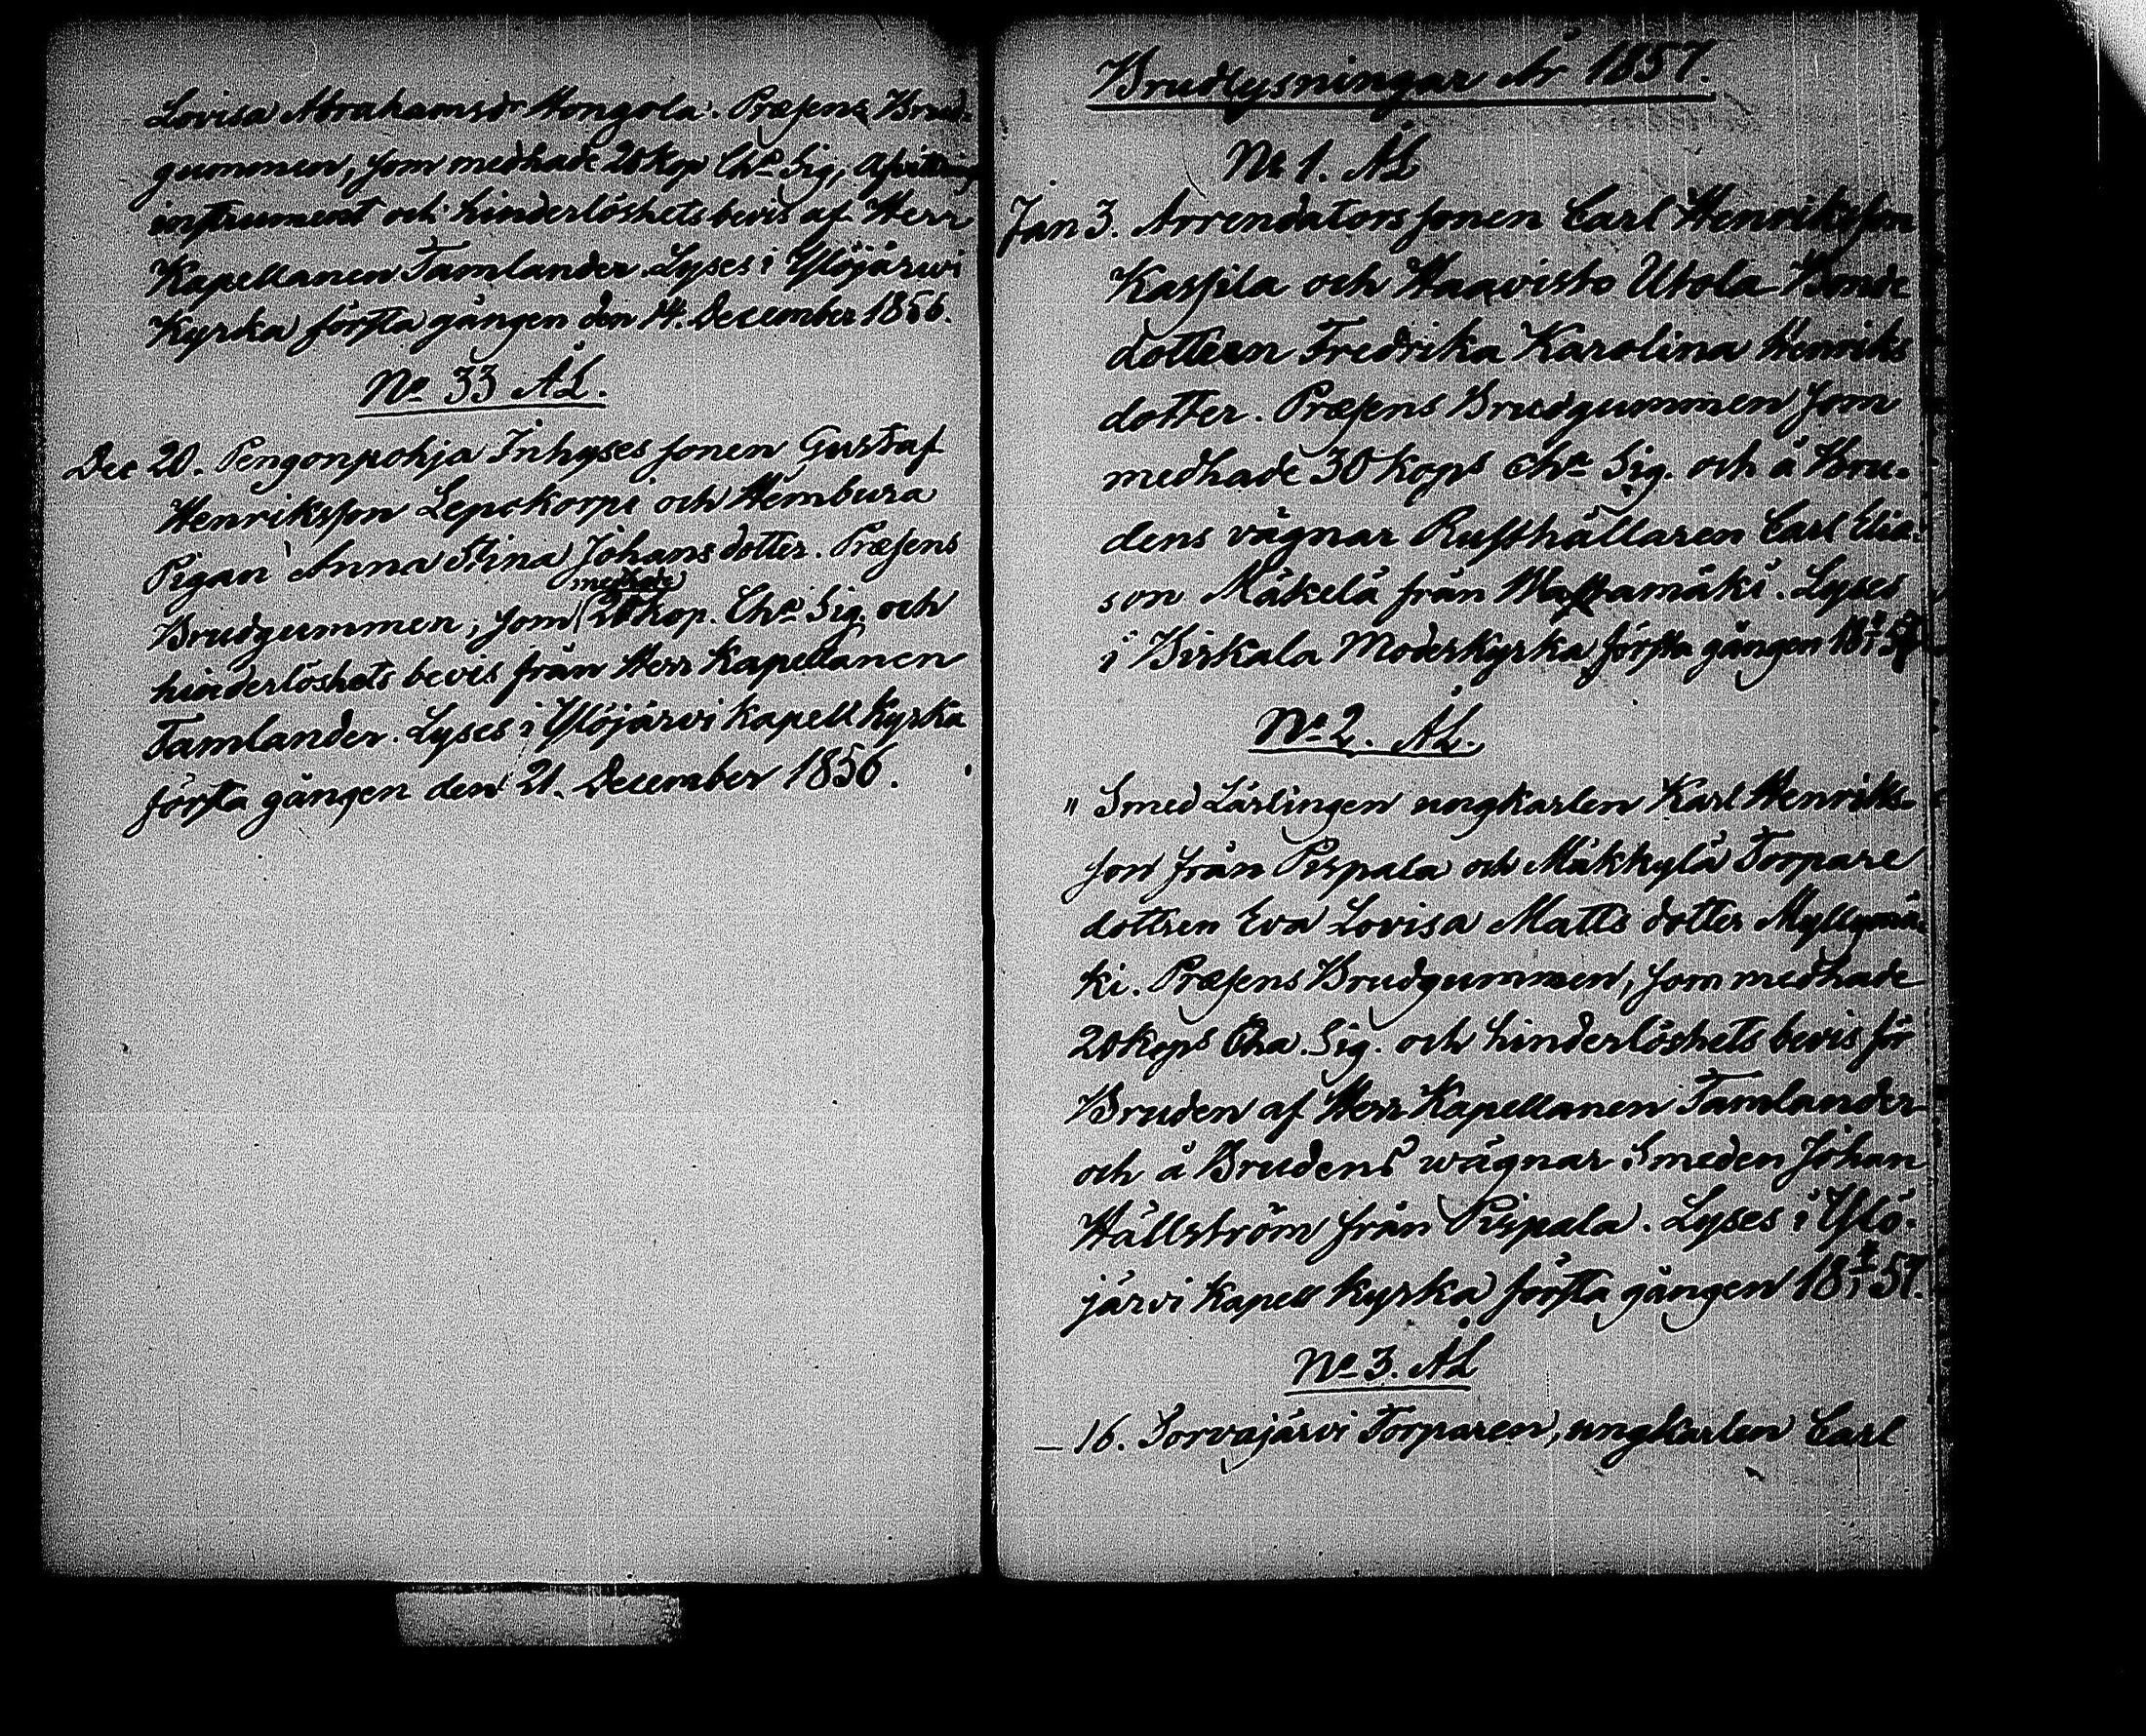 Lovisa Abrahamsdr Hongola. Præsens Brud-
gummen, som medhade 20 kop Cha Sig, Afvittrings
instrument och hinderlöshets bevis af Herr
Kapellanen Tamlander. Lyses i Ylöjärvi
Kyrka första gången den 14. December 1856.
No 33 ÅL.
Dec 20. Pengonpohja Inhyses sonen Gustaf
Henriksson Lepokorpi och Hembura
Pigan Anna Stina Johans dotter. Præsens
medhade
Brudgummen, som 20 kop. Cha Sig. och
hinderlöshets bevis från Herr Kapellanen
Tamlander. Lyses i Ylöjärvi Kapell Kyrka
första gången den 21. December 1856.
Brudlysningar År 1857.
No 1. ÅL
Jan 3. Arrendators sonen Carl Henriksson
Kassila och Haavisto Utola Bonde
dottern Fredrika Karolina Henriks
dotter. Præsens Brudgummen som
medhade 30 kops Cha Sig. och å Bru-
dens vägnar Rusthållaren Carl Elia-
son Mäkelä från . Lyses
i Birkala Moderkyrka första gången 18 57
No 2. ÅL.
" Smed Lärlingen ungkarlen Karl Henriks-
son från Pispala och Mäkkylä Torpare
dottren Eva Lovisa Matts dotter Myllymä-
ki. Præsens Brudgummen, som medhade
20 kops Cha. Sig. och hinderlöshets bevis för
Bruden af Herr Kapellanen Tamlander
och å Brudens wägnar Smeden Johan
Hällström från Pispala. Lyses i Ylö-
järvi Kapell kyrka första gången 18 57.
No 3. ÅL
— 16. Sorvajärvi Torparen, ungkarlen Carl